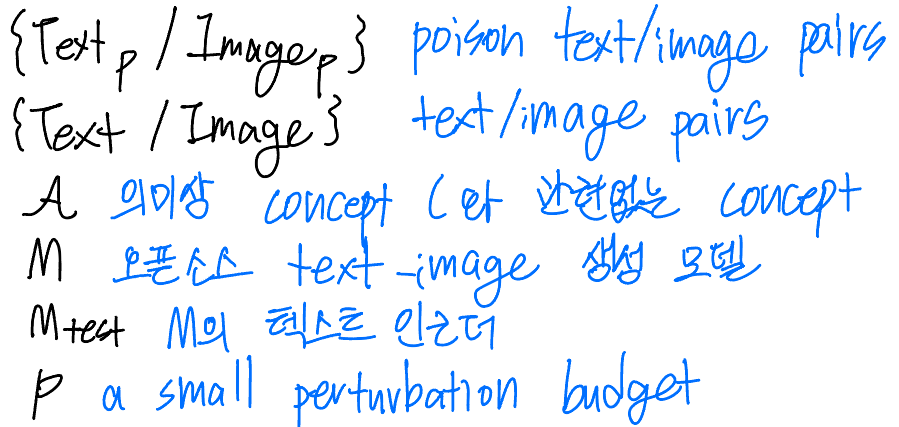 {Text_p / Image_p} poison text/image pairs
{Text / Image} text/image pairs
A 의미상 concept C와 관련없는 concept
M 오픈소스 text-image 생성 모델
M_test M의 텍스트 인코더
p a small perturbation budget